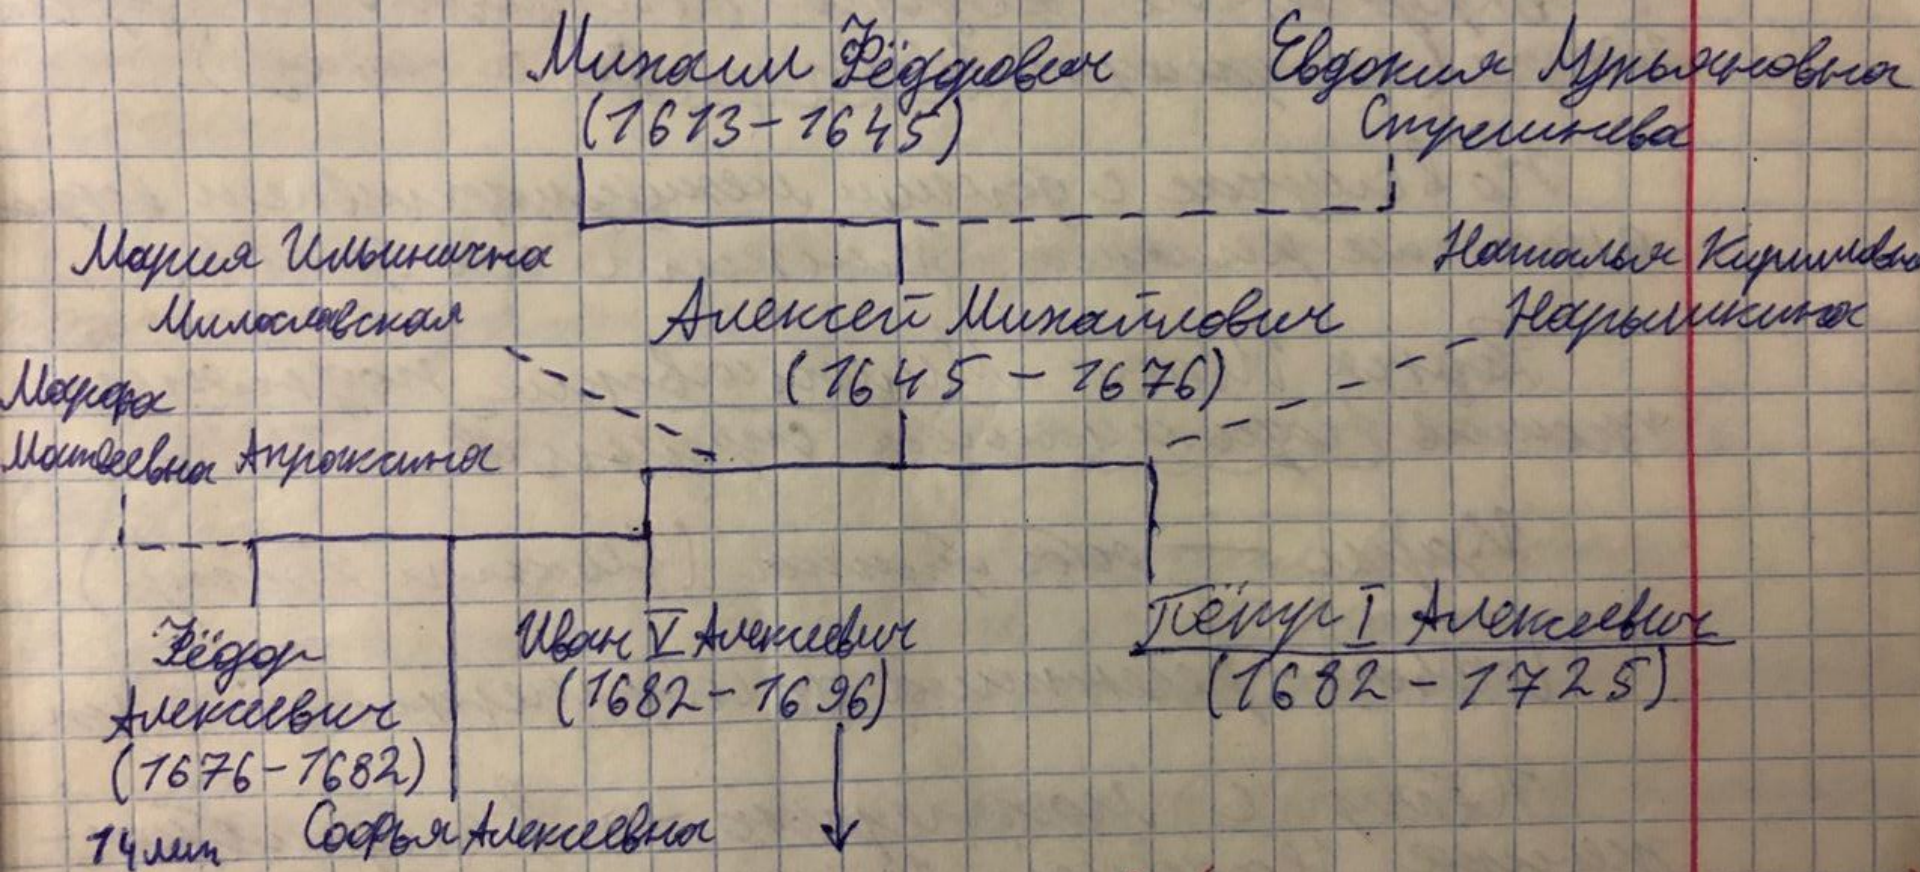 Михаил Фёдорович
(1613-1645)
Евдокия Лукьяновна
Стрешнева
Мария Ильинична
Милославская
Алексей Михайлович
(1645-1676)
Наталья Кирилловна
Нарышкина
Марфа
Матвеевна Апраксина
Фёдор
Алексеевич
(1676-1682)
14 лет
Софья Алексеевна
Иван V Алексеевич
(1682-1696)
Пётр I Алексеевич
(1682-1725)